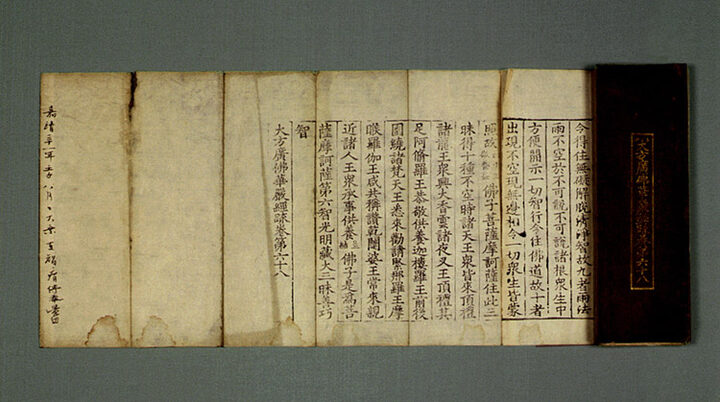 大方廣佛華嚴經疏卷第六十八
令得住無礙解脫清淨智故九者雨法
雨不空於不可說不可說諸根衆生中
方便開示一切智行令住佛道故十者
出現不空現無邊相令一切衆生皆蒙
照故 佛子菩薩摩訶薩住此三
昧得十種不空時諸天王衆皆來頂禮
諸龍王衆興大香雲諸夜叉王頂禮其
足阿脩羅王恭敬供養迦樓羅王前後
圍繞諸梵天王悉來勸請緊那羅王摩
睺羅伽王咸共稱讚乾闥婆王常來親
近諸人王衆承事供養 佛子是爲菩
薩摩訶薩第六智光明藏大三昧善巧
智
大方廣佛華嚴經疏卷第六十八
嘉靖 年 八月